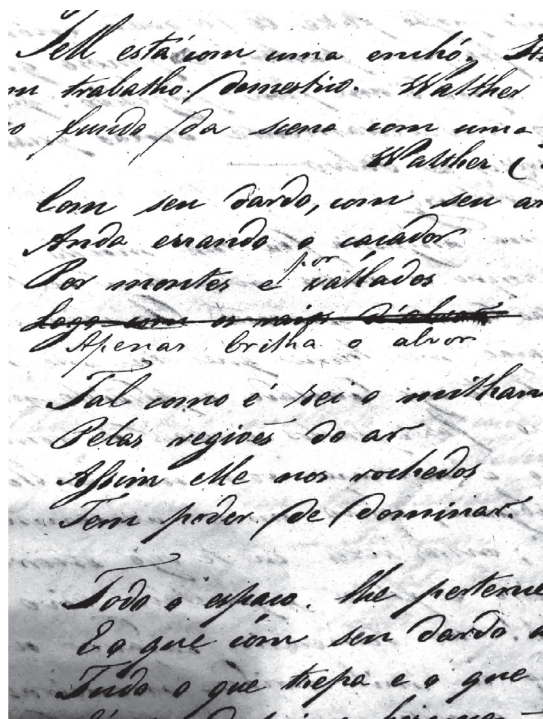 Tell está com uma enchó. He
m trabalho domestico. Walther
o fundo da scena com uma
Walther (
Com seu dardo, com seu ar
Anda errando o caçador
Por montes e por vallados
Logo com os raios d'alvor
Apenas brilha o alvor
Tal como é rei o milhan
Pelas regiões do ar
Assim elle nos rochedos
Tem poder de dominar.
Todo o espaco. lhe pertence
E o que com seu dardo a
Tudo o que trepa e o que